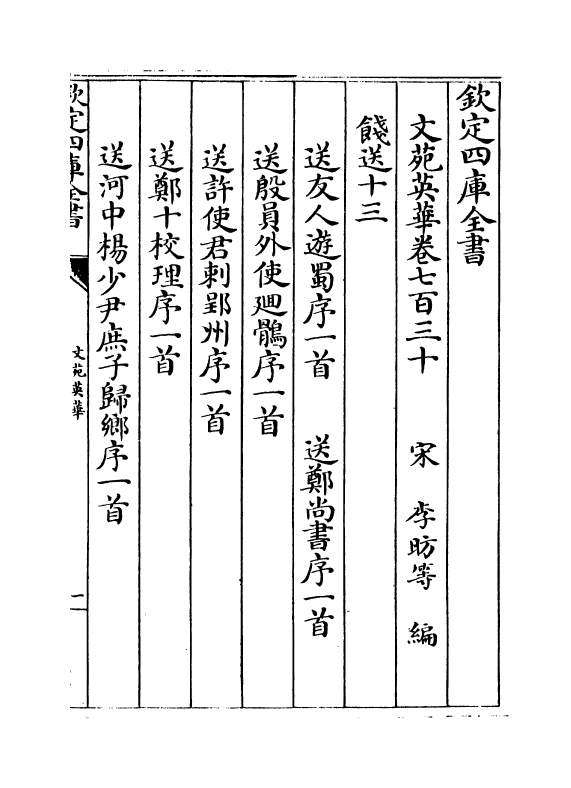 欽定四庫全書
文苑英華卷七百三十 宋 李昉等 編
餞送十三
送友人遊蜀序一首 送鄭尚書序一首
送殷員外使廻鶻序一首
送許使君刺郢州序一首
送鄭十校理序一首
送河中楊少尹庶子歸鄉序一首
欽定四庫全書 文苑英華 一